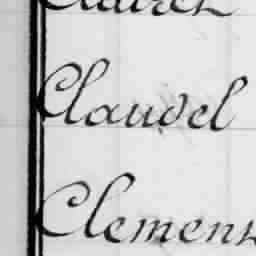 Claudel
Clement